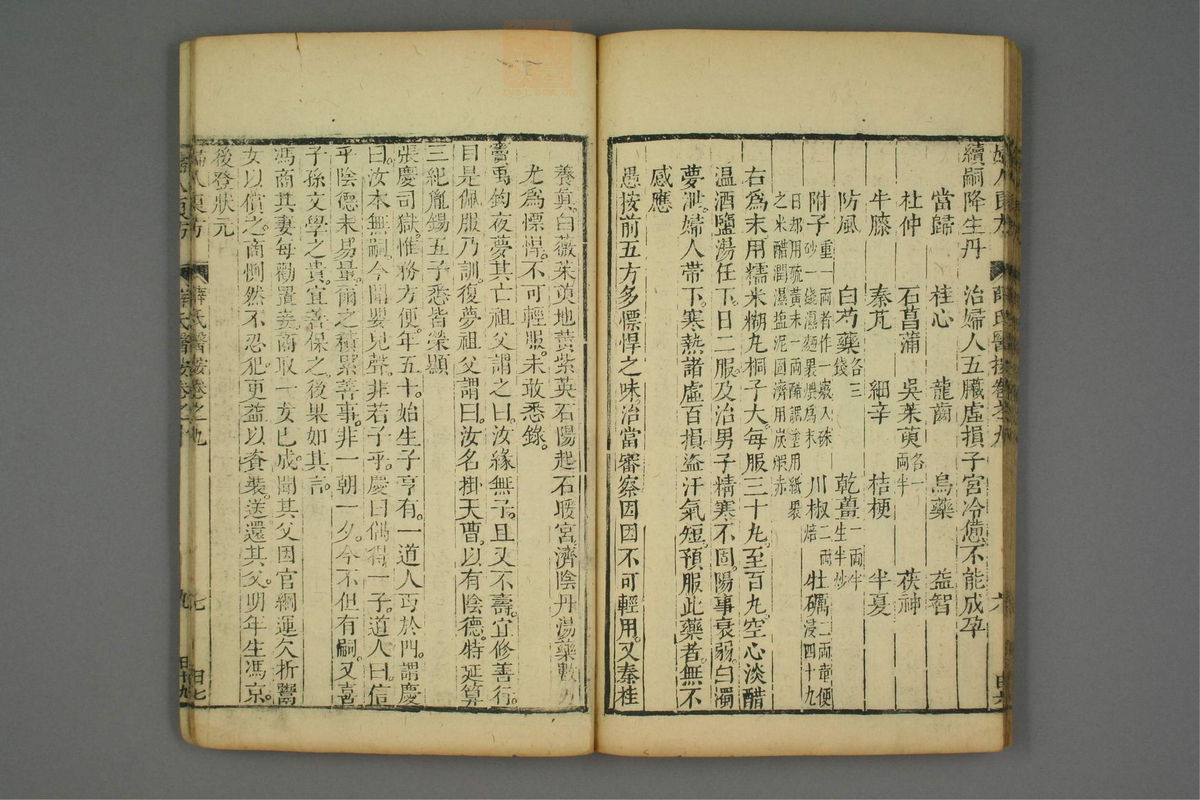 續嗣降生丹　治婦人五臟虛損子宮冷憊不能成孕
當歸　桂心　龍齒　烏藥　益智
杜仲　石菖蒲　吳茱萸各一兩半　茯神
牛膝　秦艽　細辛　桔梗　半夏
防風　白芍藥各三錢　乾薑一兩半生半炒
附子重一兩者作一竅入硃砂一錢濕麵裹煨爲末　川椒二兩焙　牡礪二兩童便浸四十九
日却用硫黃末一兩醋調塗用紙裹之米醋潤濕鹽泥固濟用炭煆赤
右爲末用糯米糊丸桐子大每服三十丸至百丸空心淡醋
温酒鹽湯任下日二服及治男子精寒不固陽事衰弱白濁
夢泄婦人帶下寒熱諸虛百損盜汗氣短預服此藥者無不
感應
愚按前五方多慓悍之味治當審察因因不可輕用又秦桂
養眞白薇茱萸地黃紫英石陽起石暖宮濟陰丹湯藥數方
尤爲慓悍不可輕服未敢悉錄
竇禹鈞夜夢其亡祖父謂之曰汝緣無子且又不壽宜修善行
目是佩服乃訓復夢祖父謂曰汝名掛天曹以有陰德特延算
三紀胤錫五子悉皆榮顯
張慶司獄惟務方便年五十始生子亨有一道人丐於門謂慶
曰汝本無嗣今聞嬰兒聲非若子乎慶曰偶得一子道人曰信
乎陰德未易量爾之積累善事非一朝一夕今不但有嗣又喜
子孫文學之貴宜善保之後果如其言
馮商其妻每勸置妾商取一女巳成聞其父因官綱運欠折鬻
女以償之商惻然不忍犯更益以奩裝送還其父明年生馮京
後登狀元
婦人良方　薛氏醫按卷之九　七